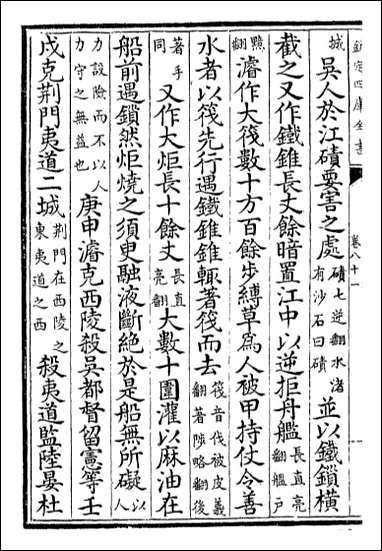 欽定四庫全書 卷八十一
城吳人於江磧要害之處磧七逆翻水渚有沙石曰磧並以鐵鎖橫
截之又作鐵錐長丈餘暗置江中以逆拒舟艦長直亮翻艦戶
黯翻濬作大筏數十方百餘步縛草為人被甲持仗令善
水者以筏先行遇鐵錐錐輒著筏而去筏音伐被皮義翻著陟略翻後
著手同又作大炬長十餘丈長直亮翻大數十圍灌以麻油在
船前遇鎖然炬燒之須臾融液斷絕於是船無所礙以人
力設險而不以人力守之無益也庚申濬克西陵殺吳都督留憲等壬
戌克荆門夷道二城荆門在西陵之東夷道之西殺夷道監陸晏杜